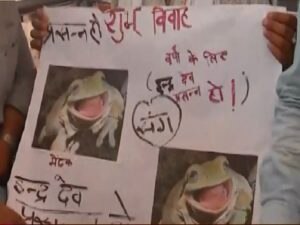 प्रसन्न हो
शुभ विवाह
वर्षा के लिए
(इन्द्र देव
प्रसन्न हो!)
संग
मेंढक
इन्द्र देव